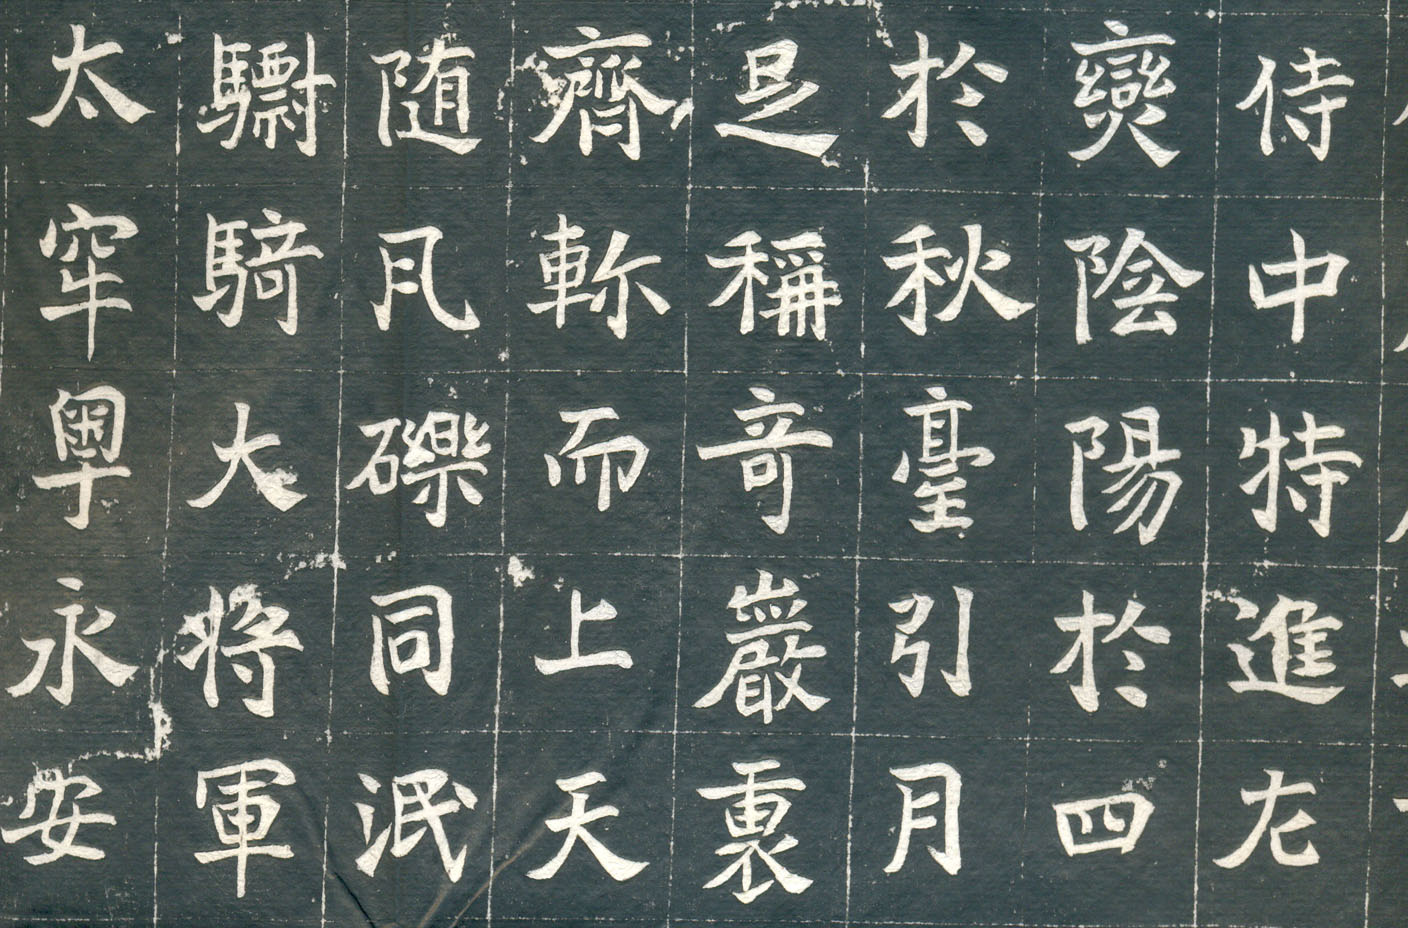 侍中特進左
燮陰陽於四
於秋臺引月
足稱奇巖裏
齊軫而上天
随風礫同泯
驃騎大将軍
太宰粤永安